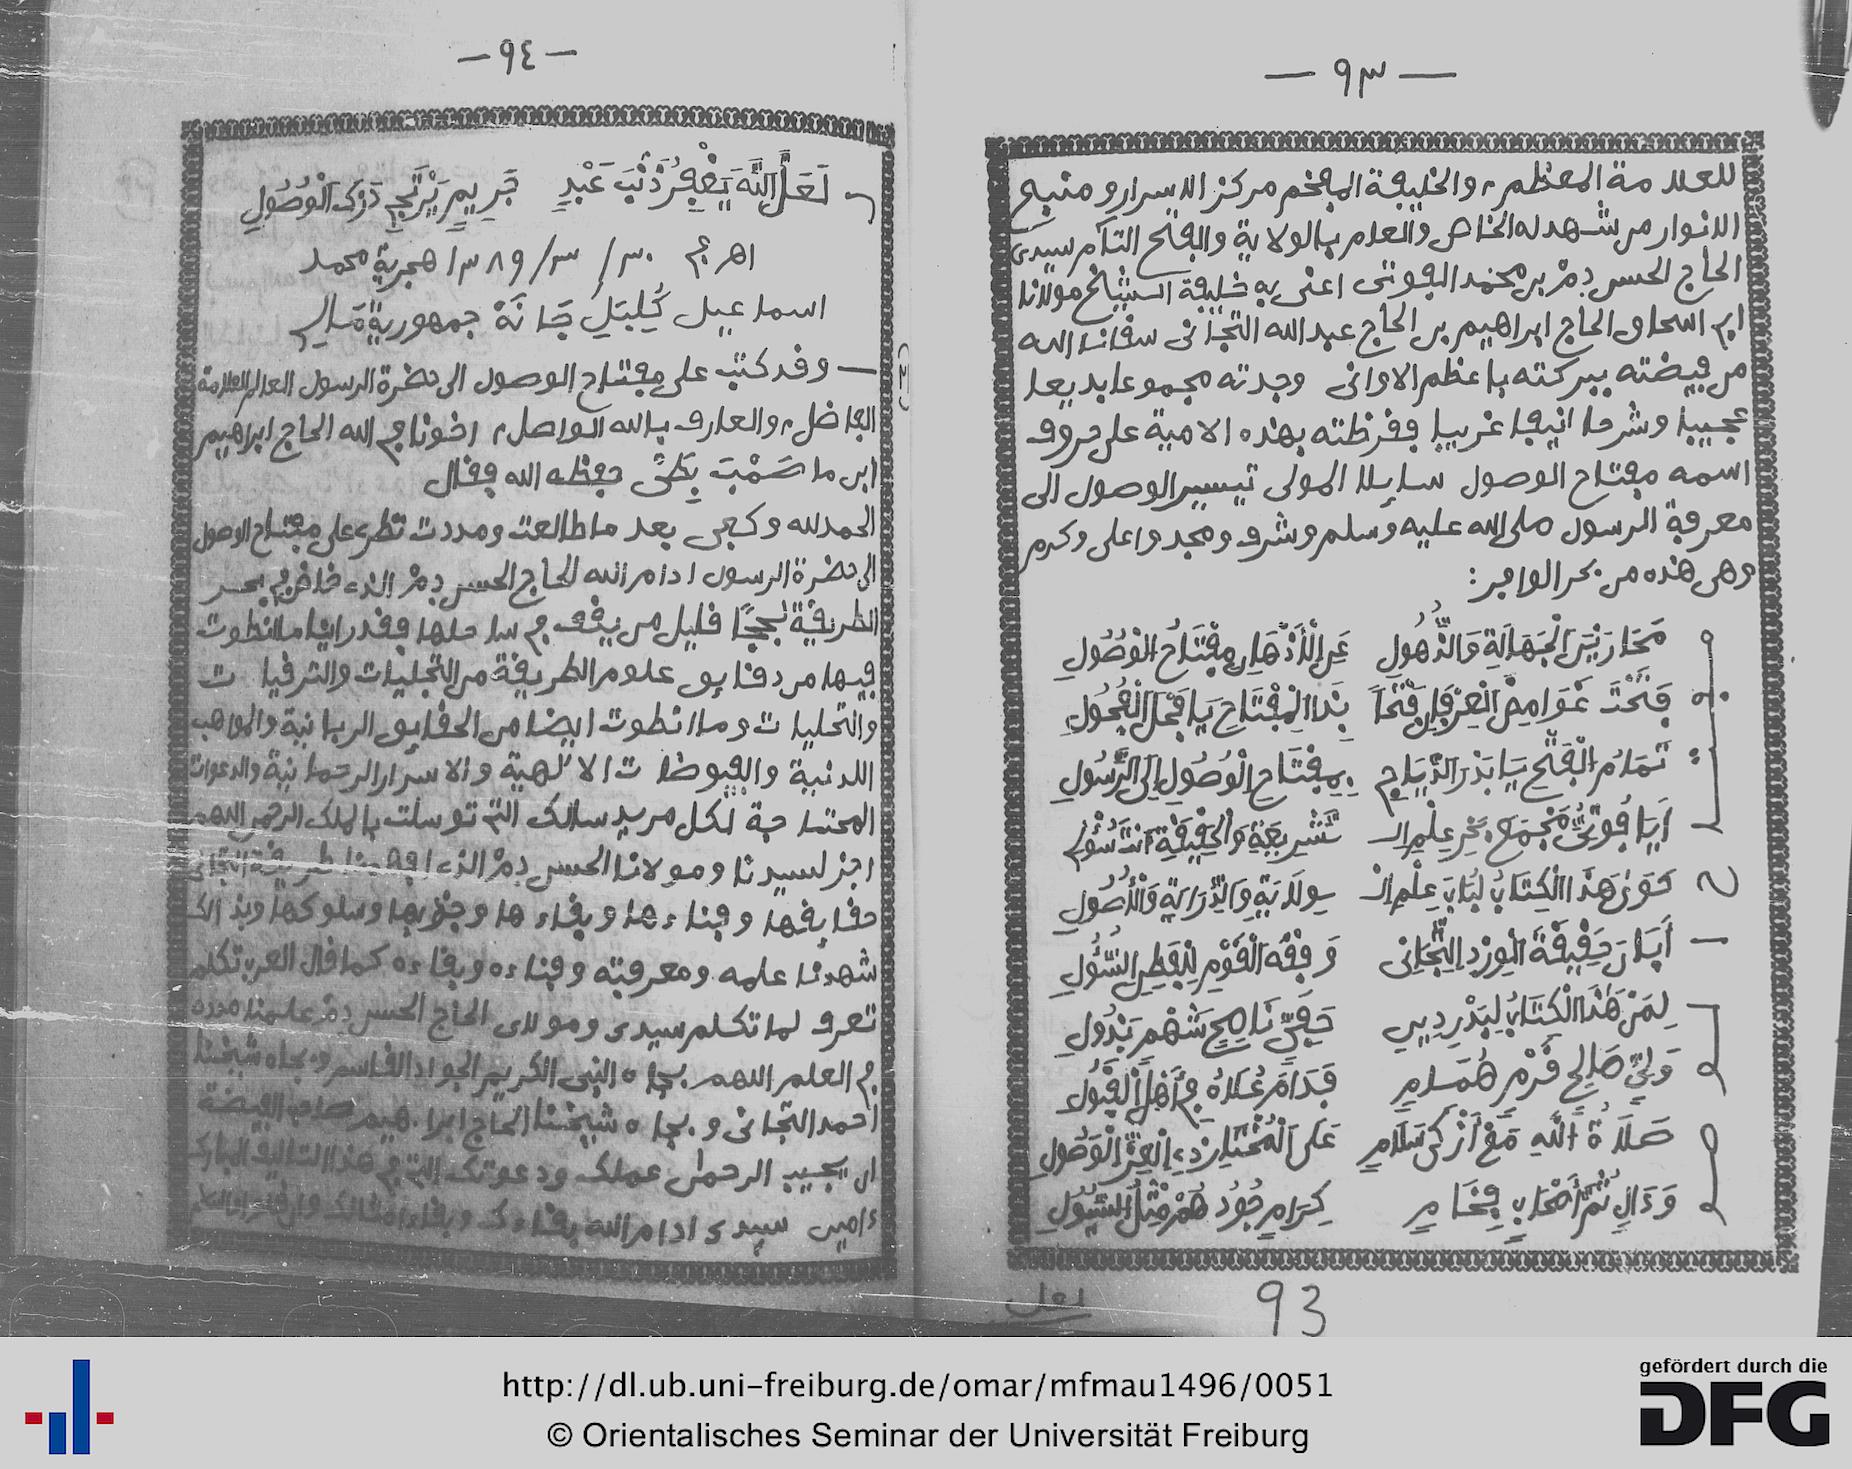 — ٩٣ —
للعلامة المعظم، والخليفة المفخم مركز الاسرار ومنبع
الانوار من شهد له الخاص والعام بالولاية والفتح التام سيدى
الحاج الحسن دِمْ بن محمد الفوتى اعنى به خليفة الشيخ مولانا
ابى اسحاق الحاج ابراهيم بن الحاج عبد الله التجانى سقانا الله
من فيضته ببركته باعظم الاوانى وجدته مجموعا بديعا
عجيبا وشرحا انيقا غريبا فقرظته بهذه الامية على حروف
اسمه مفتاح الوصول سايلا المولى تيسير الوصول الى
معرفة الرسول صلى الله عليه وسلم وشرف ومجد واعلى وكرم
وهى هذه من بحر الوافر:
م مَحَا رَيْنَ الْجَهَالَةِ وَالذُّهُولِ عَنِ الْأَذْهَانِ مِفْتَاحُ الْوُصُولِ
ف فَتَحْتَ غَوَامِضَ الْعِرْفَانِ فَتْحًا بِذَا الْمِفْتَاحِ يَا فَحْلَ الْفُحُولِ
ت تَمَامُ الْفَتْحِ يَا بَدْرَ الدَّيَاجِى بِمِفْتَاحِ الْوُصُولِ إِلَى الرَّسُولِ
ا أَيَا فُوتِىُّ مَجْمَعَ بَحْرِ عِلْمِ الـ شَّرِيعَةِ وَالْحَقِيقَةِ أَنْتَ سُولِى
ح حَوَى هَذَا الْكِتَابُ لُبَابَ عِلْمِ الْـ ـوِلَايَةِ وَالدِّرَايَةِ وَالْأُصُولِ
ا أَبَانَ حَقِيقَةَ الْوِرْدِ التِّجَانِى وَفِقْهَ الْقَوْمِ لِلْفَطِنِ السَّئُولِ
ل لِمَنْ هَذَا الْكِتَابُ لِبَدْرِ دِينٍ حَفِىٍّ نَاصِحٍ شَهْمٍ بَذُولِ
و وَلِىٍّ صَالِحٍ قَرْمٍ هُمَامٍ فَدَامَ عُلَاهُ فِى أَهْلِ الْقَبُولِ
ص صَلَاةُ اللَّهِ مَعْ أَزْكَى سَلَامٍ عَلَى الْمُخْتَارِ ذِى الْعِزِّ الْوَصُولِ
و وَءَالٍ ثُمَّ أَصْحَابٍ فِخَامٍ كِرَامٍ جُودُهُمْ مِثْلُ السُّيُولِ
لعل
93
— ٩٤ —
ل لَعَلَّ اللَّهَ يَغْفِرُ ذَنْبَ عَبْدٍ جَرِيمٍ يَرْتَجِى دَرْكَ الْوُصُولِ
اهـ فى ٣٠/ ٣/ ١٣٨٩ هجرية محمد
اسماعيل كُلِبَلِ جَانَهْ جمهورية مَالِى
— وقد كتب على مفتاح الوصول الى حضرة الرسول العالم العلامة
الفاضل، والعارف بالله الواصل، اخونا فى الله الحاج ابراهيم
ابن ما صَمْبَ حفظه الله فقال
الحمد لله وكفى بعد ما طالعت ومددت نظرى على مفتاح الوصول
الى حضرة الرسول ادام الله الحاج الحسن دِمْ الذى خاض فى بحر
الطريقة لججًا قليل من يقف فى ساحلها فقد راينا ما انطوت
فيها من دقايق علوم الطريقة من التجليات والترقيات
والتحليات وما انطوت ايضا من الحقايق الربانية والمواهب
اللدنية والفيوضات الالهية والاسرار الرحمانية والدعوات
المحتاجة لكل مريد سالك التى توسلت بالملك الرحمن اللهم
اجز لسيدنا ومولانا الحسن دِمْ الذى افهمنا طريقة التجانى
حقايقها وفناءها وبقاءها وجذبها وسلوكها وبذالك
شهدنا علمه ومعرفته وفناءه وبقاءه كما قال العرب تكلم
تعرف لما تكلم سيدى ومولاى الحاج الحسن دِمْ علمنا مدده
فى العلم اللهم بجاه النبى الكريم الجواد القاسم وبجاه شيخنا
احمد التجانى وبجاه شيخنا الحاج ابراهيم صاحب الفيضة
ان يجيب الرحمان عملك ودعوتك التى فى هذا التاليف المبارك
ءامين سيدى ادام الله بقاءك وبقاء امثالك
http://dl.ub.uni-freiburg.de/omar/mfmau1496/0051
© Orientalisches Seminar der Universität Freiburg
gefördert durch die
DFG